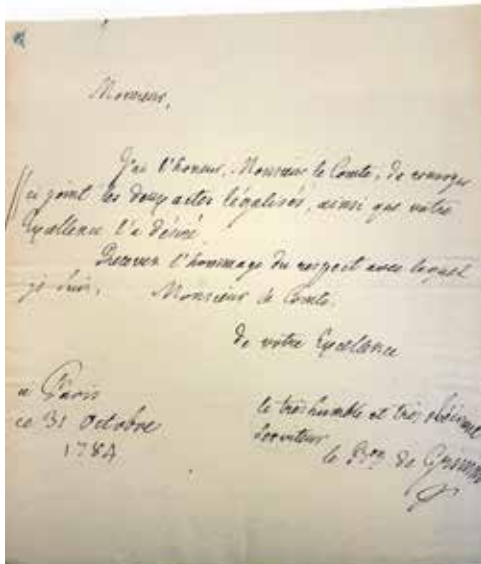 Monsieur,
J'ai l'honneur, Monsieur le Comte, de renvoyer
ci joint les deux actes légalisés, ainsi que votre
Excellence l'a désiré
Recevez l'hommage du respect avec lequel
je suis, Monsieur le Comte.
de votre Excellence
à Paris
ce 31 Octobre
1784
le très humble et très obéissant
Serviteur
le Bon de